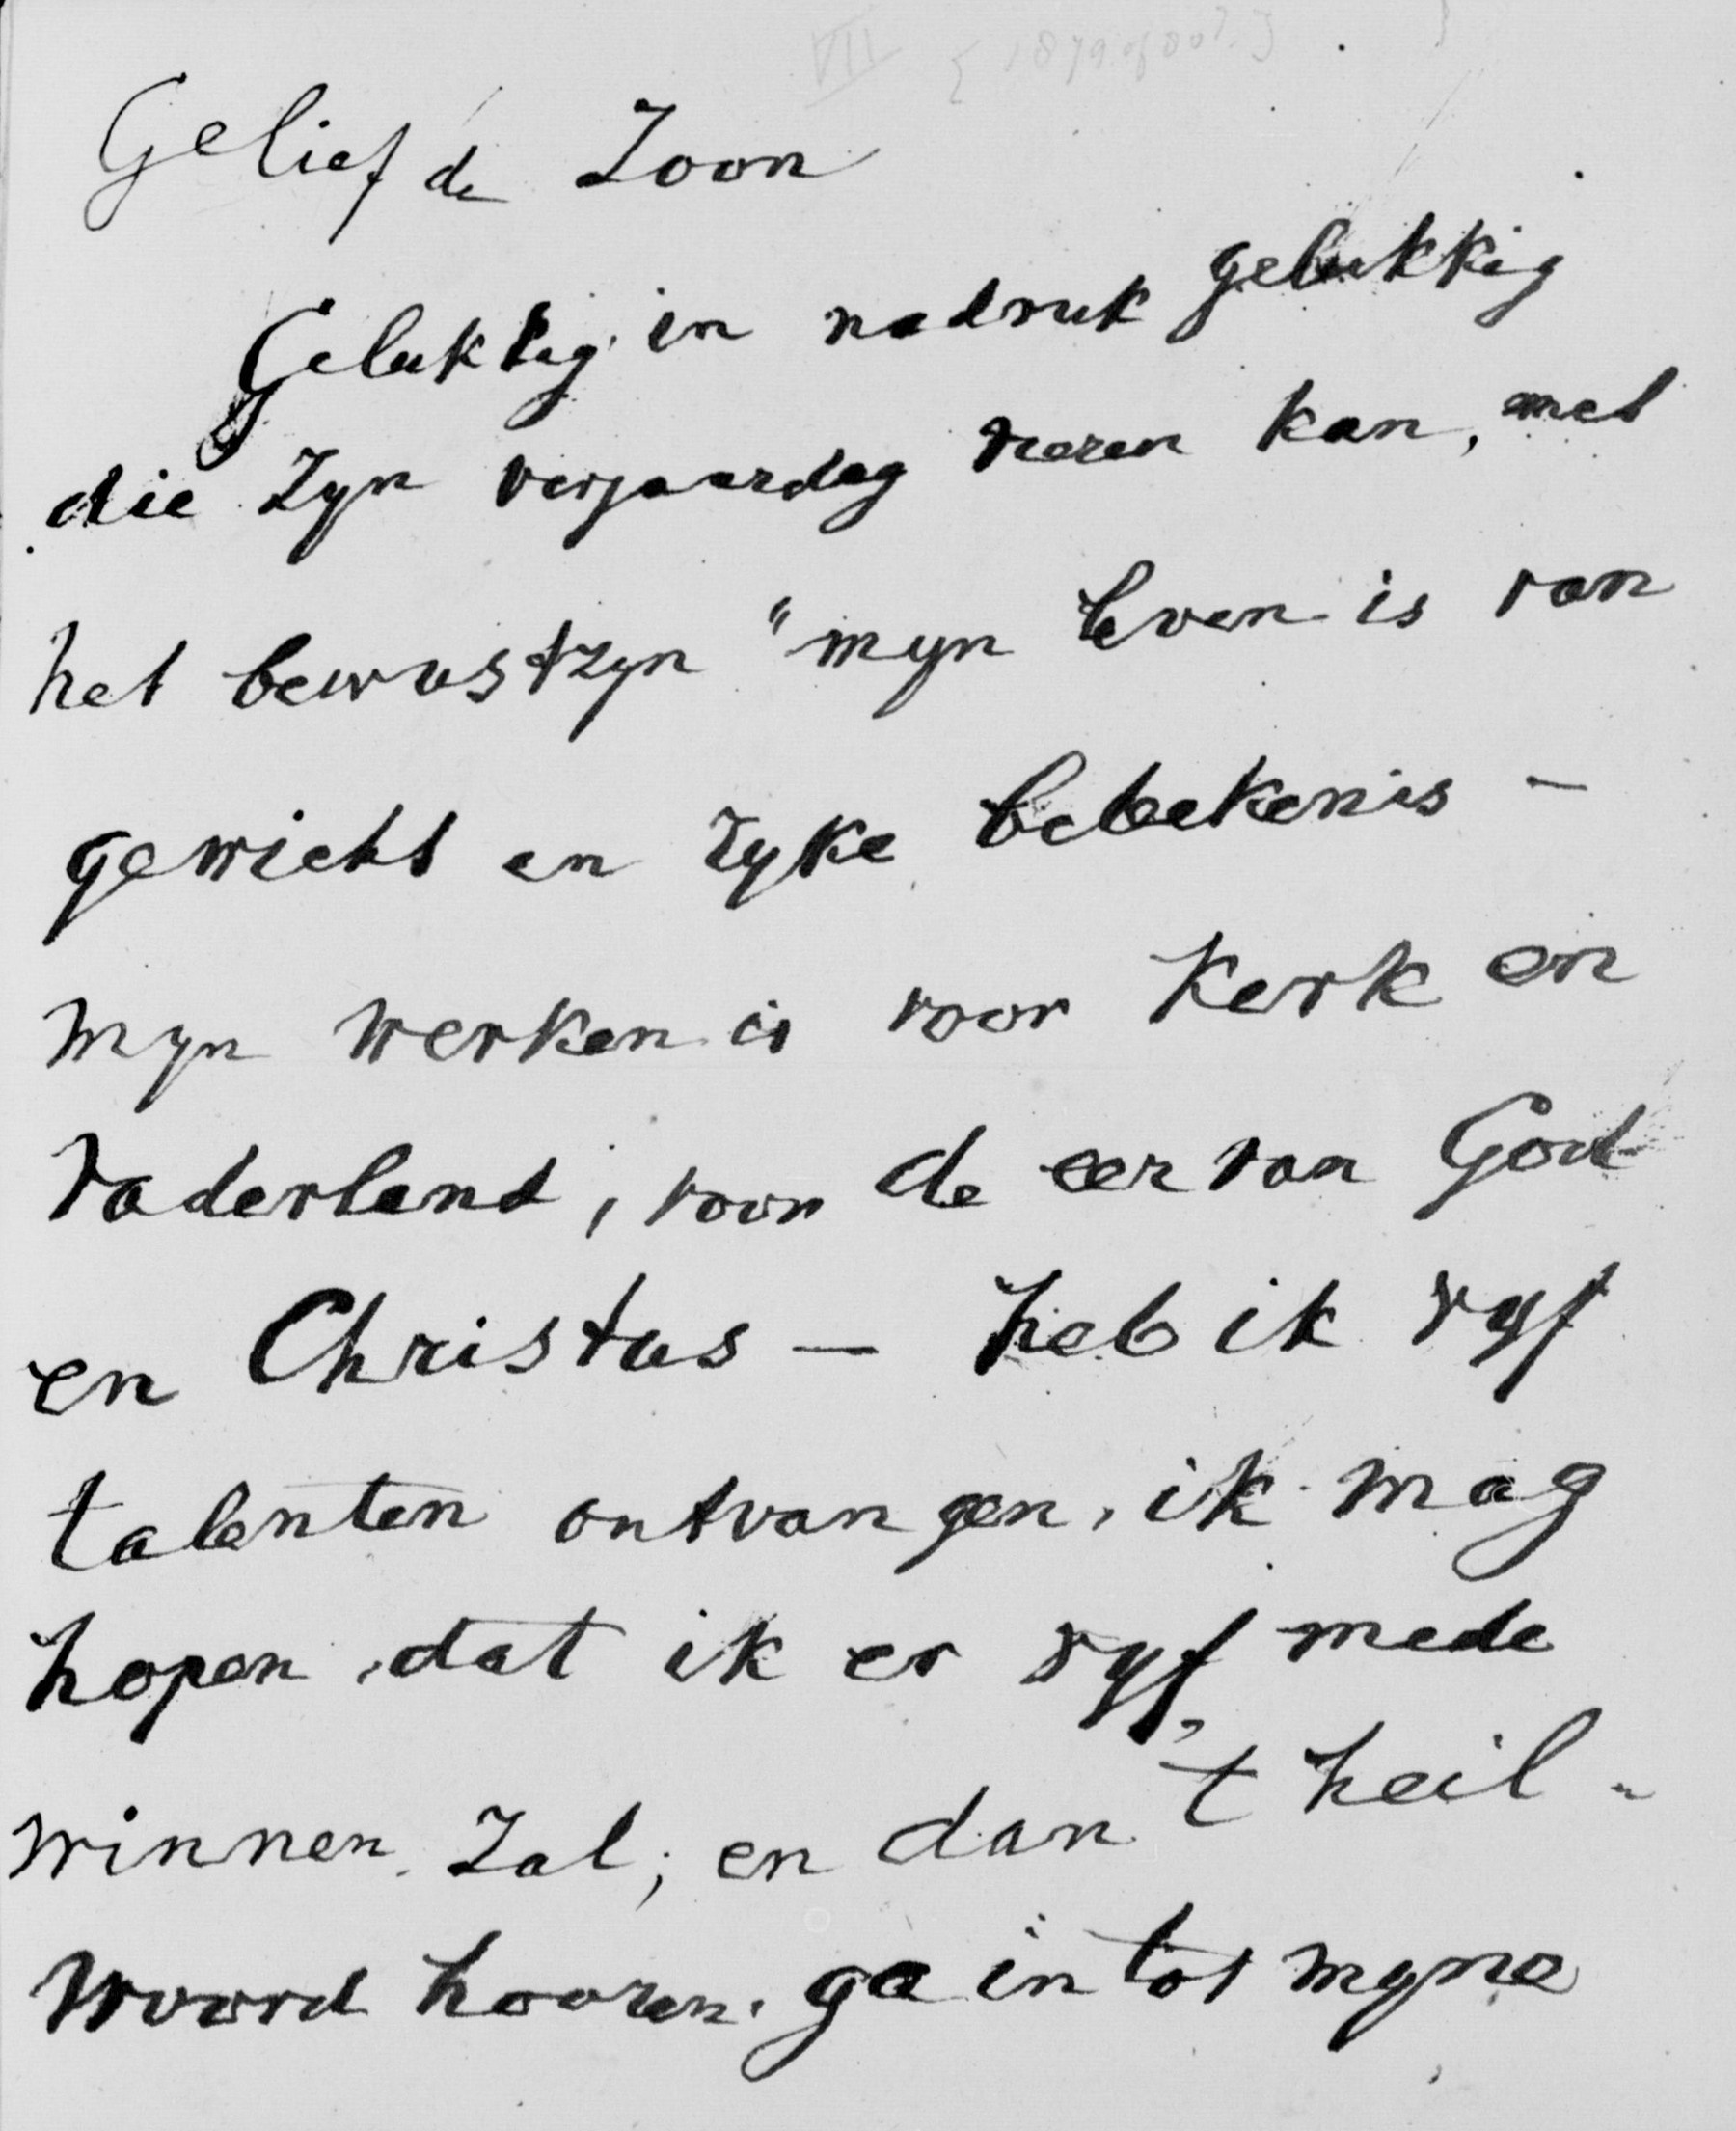 VII [1879 of 80?]
Geliefde Zoon
Gelukkig in nadruk gelukkig
die zyn verjaardag vieren kan, met
het bewustzyn "myn leven is van
gewicht en ryke betekenis –
myn werken is voor Kerk en
Vaderland, voor de eer van God
en Christus – heb ik vyf
talenten ontvangen, ik mag
hopen dat ik er vyf mede
winnen zal; en dan 't heil-
woord hooren. ga in tot myne